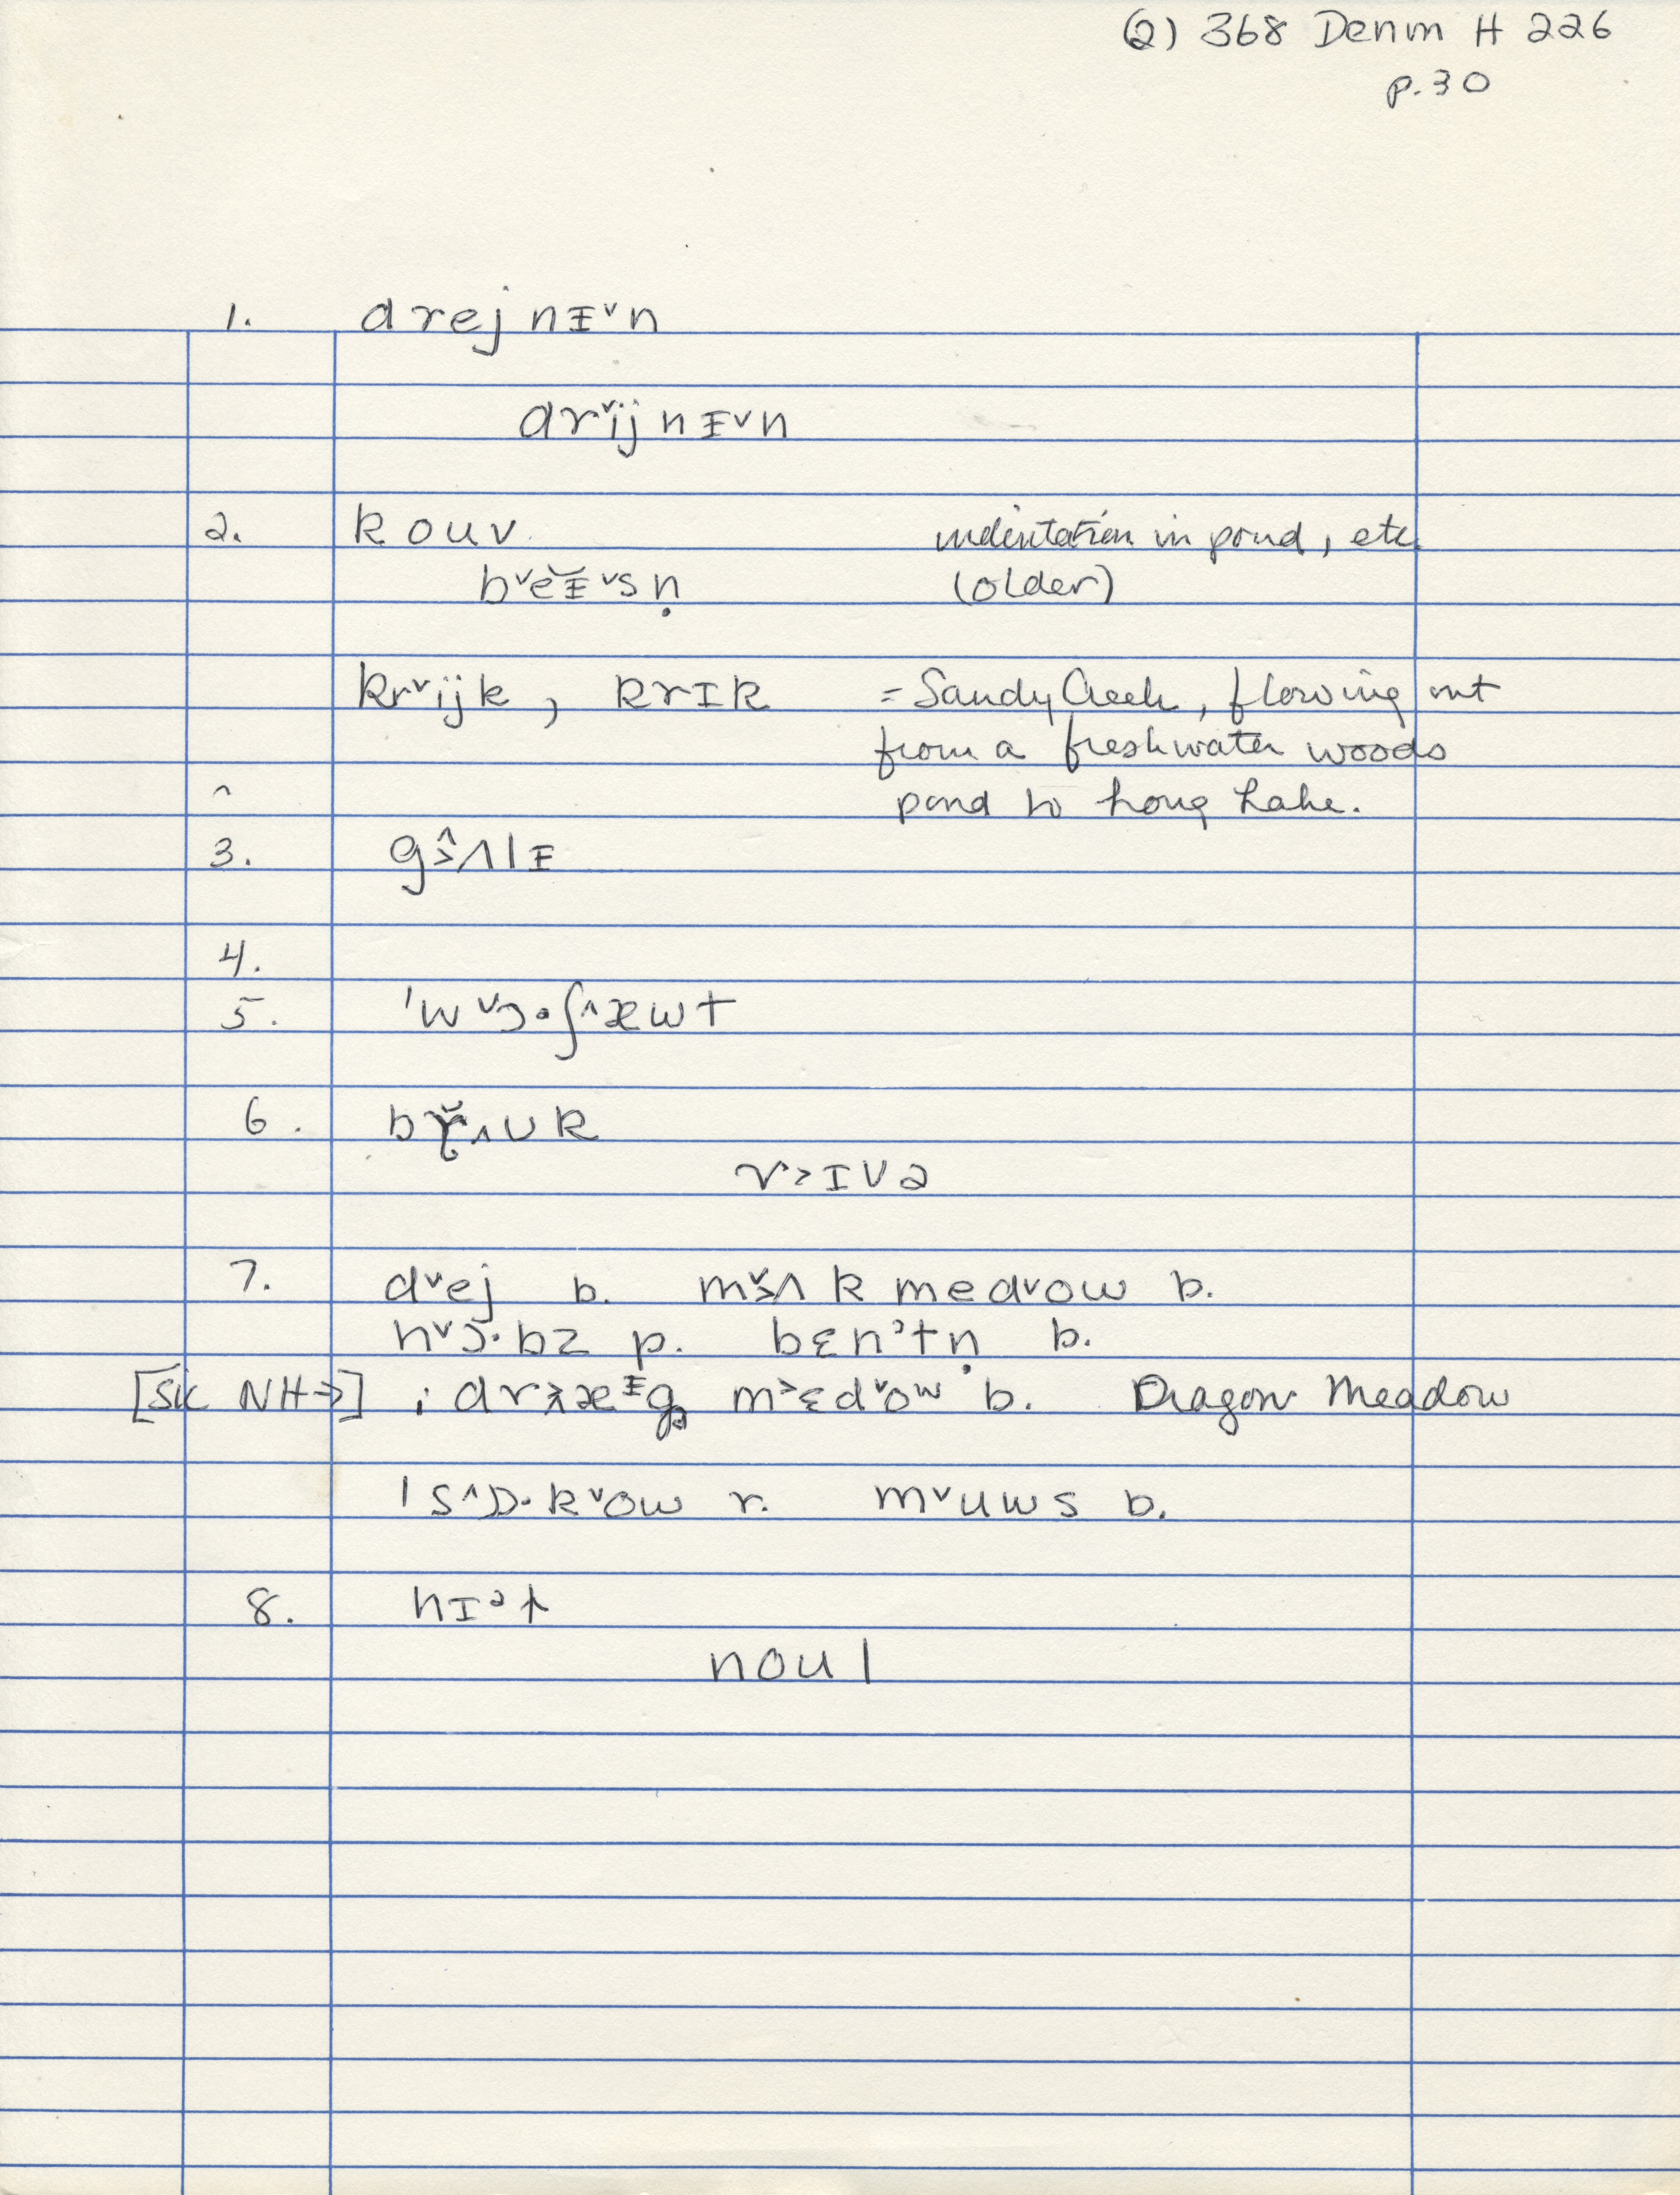 (2) 368 Denm H 226
p.30
1. drej nᵻ˅n
dr˅ij nᵻ˅n
2. kouv indentation in pond, etc.
b˅ĕᵻ˅sṇ (older)
kr˅ijk, krɪk = Sandy Creek, flowing out
from a freshwater woods
pond to Long Lake.
^
3. g˃̂ʌlᵻ
4.
5. ˈw˅ɔ·ʃ^æwt
6. ʌʊk
r˃ɪvə
7. d˅ej b. m˃̌ʌk med˅ow b.
h˅ɔ̆·bz p. bɛnˀtṇ b.
[SIC NH→] ; m˃ɛd˅ow b. Dragon Meadow
ˈs^ɒ·k˅ow r. m˅uws b.
8.
noul